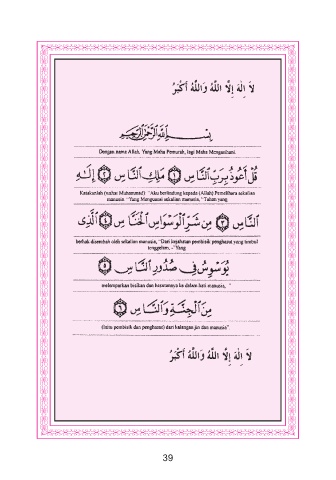 لَا إِلٰهَ إِلَّا اللّٰهُ وَاللّٰهُ أَكْبَرُ
بِسْمِ اللَّهِ الرَّحْمَٰنِ الرَّحِيمِ
Dengan nama Allah, Yang Maha Pemurah, lagi Maha Mengasihani.
قُلْ أَعُوذُ بِرَبِّ النَّاسِ ﴿١﴾ مَلِكِ النَّاسِ ﴿٢﴾ إِلَٰهِ
Katakanlah (wahai Muhammad): "Aku berlindung kepada (Allah) Pemelihara sekalian
manusia. "Yang Menguasai sekalian manusia, "Tuhan yang
النَّاسِ ﴿٣﴾ مِن شَرِّ الْوَسْوَاسِ الْخَنَّاسِ ﴿٤﴾ الَّذِي
berhak disembah oleh sekalian manusia, "Dari kejahatan pembisik penghasut yang timbul
tenggelam, -"Yang
يُوَسْوِسُ فِي صُدُورِ النَّاسِ ﴿٥﴾
melemparkan bisikan dan hasutannya ke dalam hati manusia, "
مِنَ الْجِنَّةِ وَالنَّاسِ ﴿٦﴾
(Iaitu pembisik dan penghasut) dari kalangan jin dan manusia".
لَا إِلٰهَ إِلَّا اللّٰهُ وَاللّٰهُ أَكْبَرُ
39